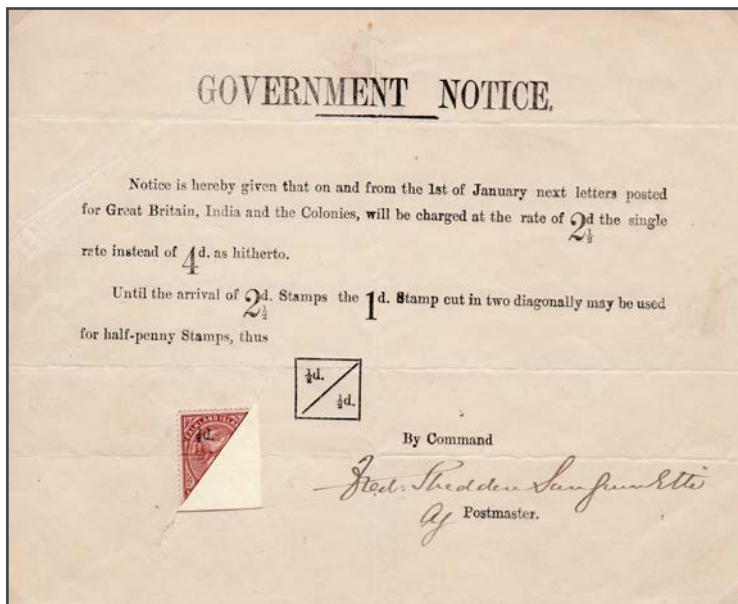 GOVERNMENT NOTICE.
Notice is hereby given that on and from the 1st of January next letters posted
for Great Britain, India and the Colonies, will be charged at the rate of 2½d the single
rate instead of 4d. as hitherto.
Until the arrival of 2½d. Stamps the 1d. Stamp cut in two diagonally may be used
for half-penny Stamps, thus
½d.
½d.
FALKLAND ISL
½d.
By Command
Fred: Shedden Sanguinetti
Ag Postmaster.